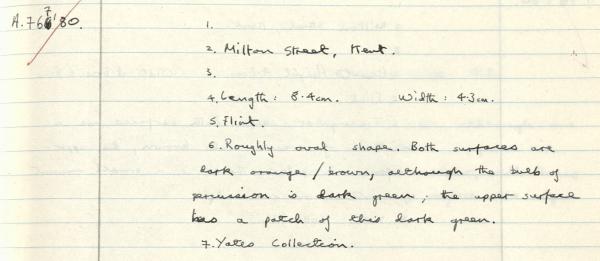 A.767'80.
1.
2. Milton Street, Kent.
3.
4. Length: 8.4cm. Width: 4.3cm.
5. Flint.
6. Roughly oval shape. Both surfaces are
dark orange/brown, although the bulb of
percussion is dark green; the upper surface
has a patch of this dark green.
7. Yates Collection.